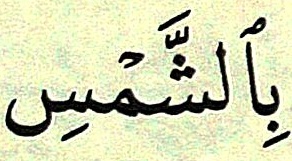 بِٱلشَّمۡسِ